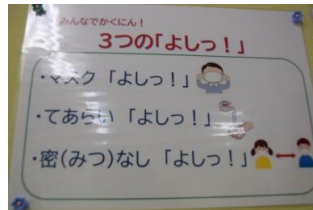 みんなでかくにん！
3つの「よしっ！」
・マスク「よしっ！」
・てあらい「よしっ！」
・密(みつ)なし「よしっ！」